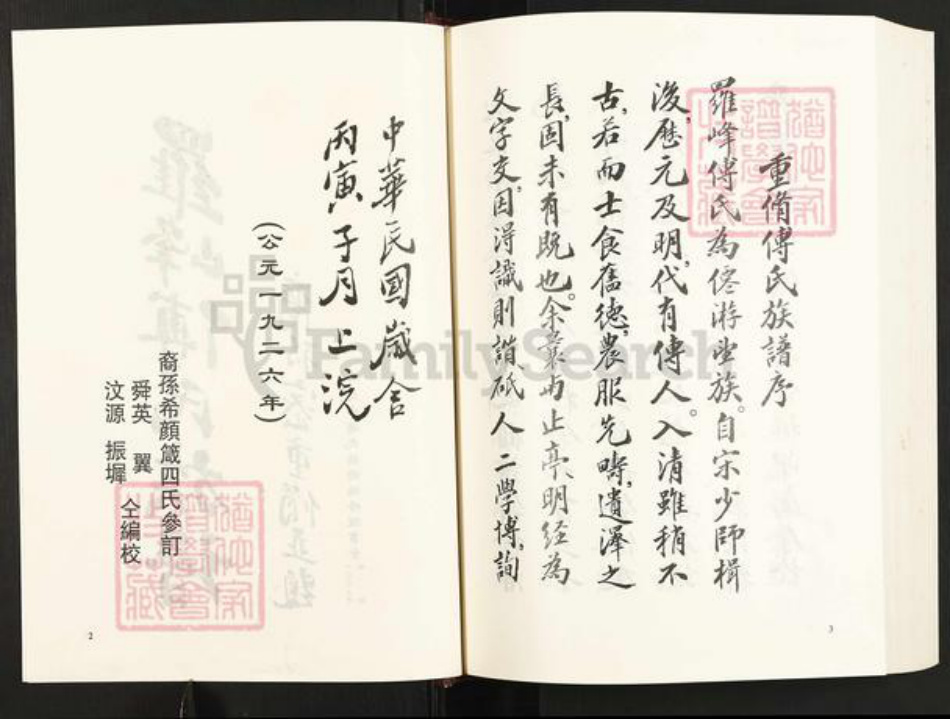 重脩傅氏族譜序
羅峰傅氏為僊游望族。自宋少師楫
後,歷元及明,代有傳人。入清雖稍不
古,若而士食舊德,農服先疇,遺澤之
長,固未有既也。余曩與止亭、明經為
文字交,因得識則諧砥人二學博,詢
3
中華民國歲合
丙寅子月上浣
(公元一九二六年)
裔孫希顏箴四氏參訂
舜英 翼
汶源 振墀 仝編校
2
FamilySearch